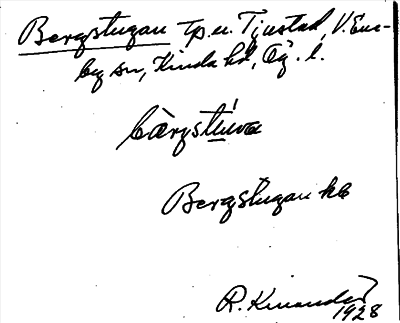 Bergstugan tp u. Tjustad, V. Ene-
by sn, Kinda hd, Ög. l.
bàrgstúwa
Bergstugan hb
R. Kinander
1928